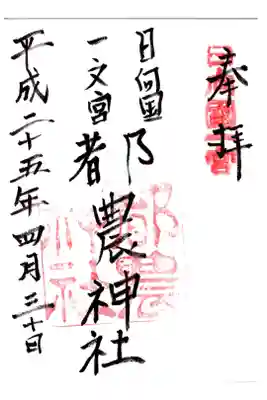 奉拝
日向国
一之宮
都農神社
平成二十五年四月三十日